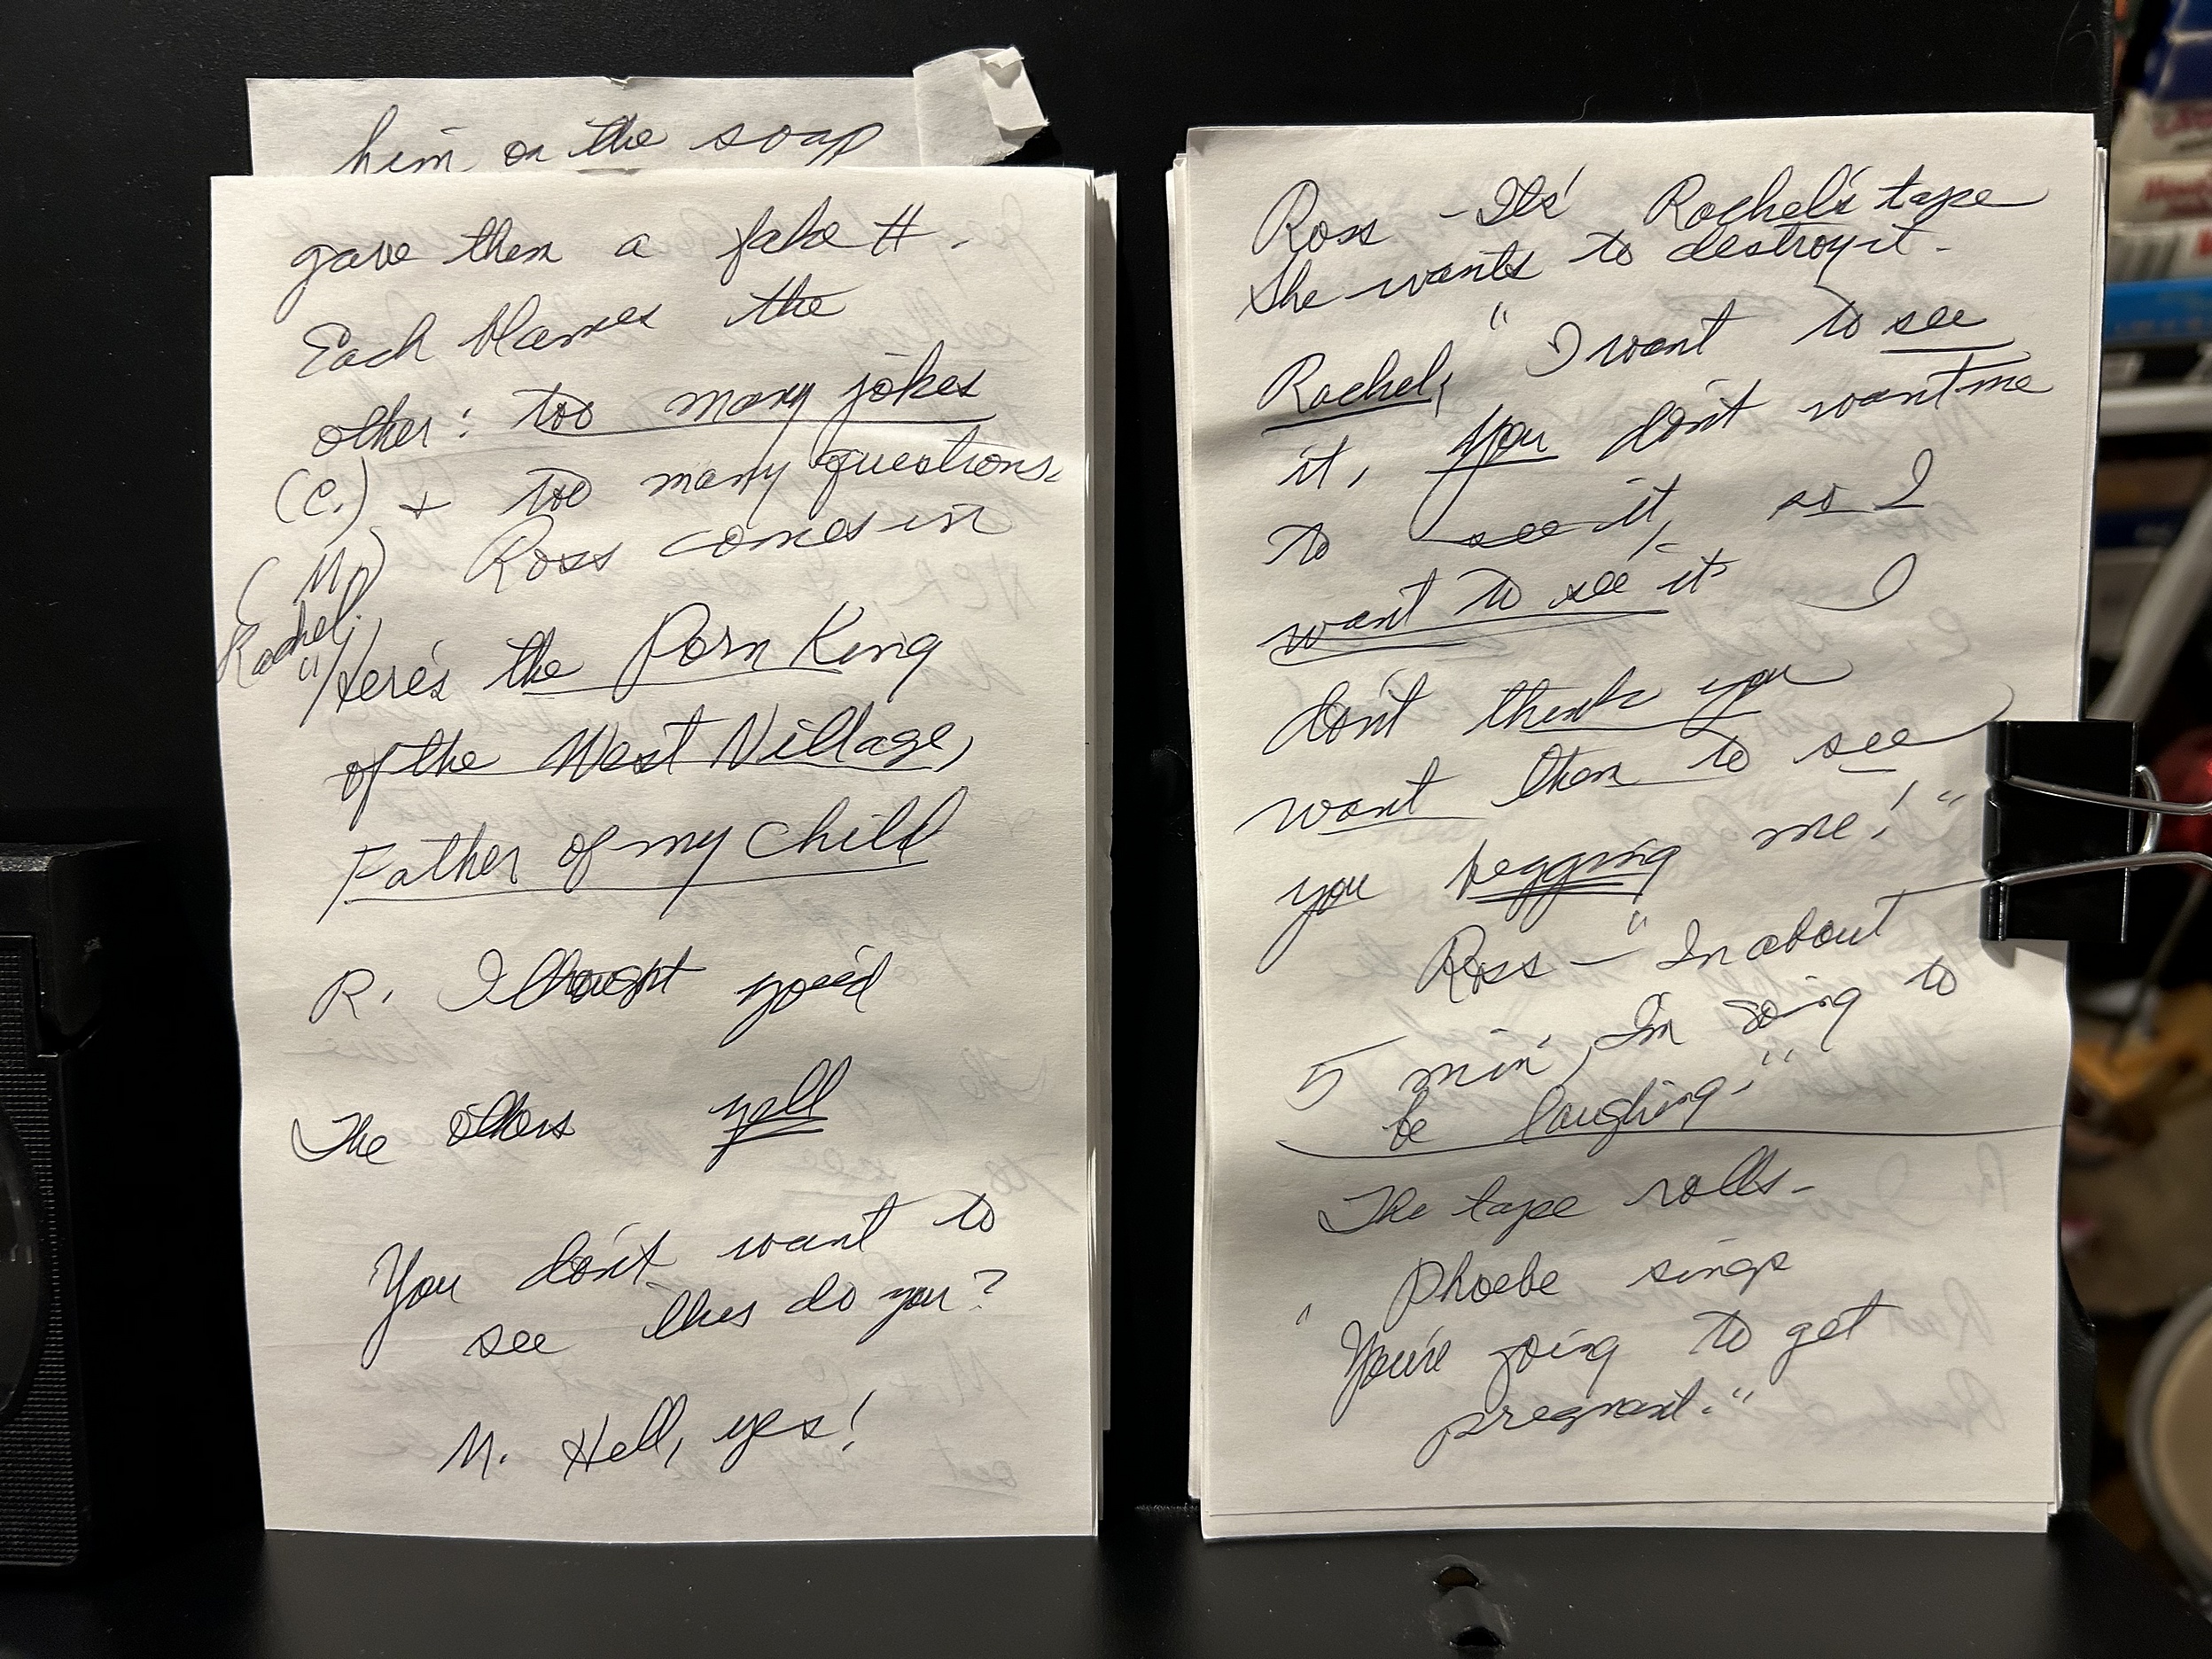 him on the soap
gave them a fake #.
Each blames the
other: too many jokes
(C.) + too many questions.
(M) Ross comes in
Rachel,
"Here's the Porn King
of the West Village,
Father of my child
R. I thought you'd
The others yell
You don't want to
see this do you?
M. Hell, yes!
Ross - Its' Rachel's tape
She wants to destroy it.
Rachel, "I want to see
it, you don't want me
to see it, so I
want to see it I
don't think you
want them to see
you begging me!"
Ross - "In about
5 min, I'm going to
be laughing."
The tape rolls -
Phoebe sings
"You're going to get
pregnant."